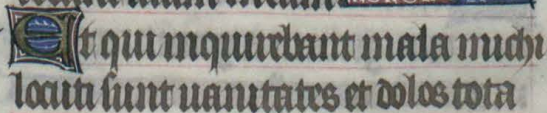 Et qui inquirebant mala michi
locuti sunt uanitates et dolos tota